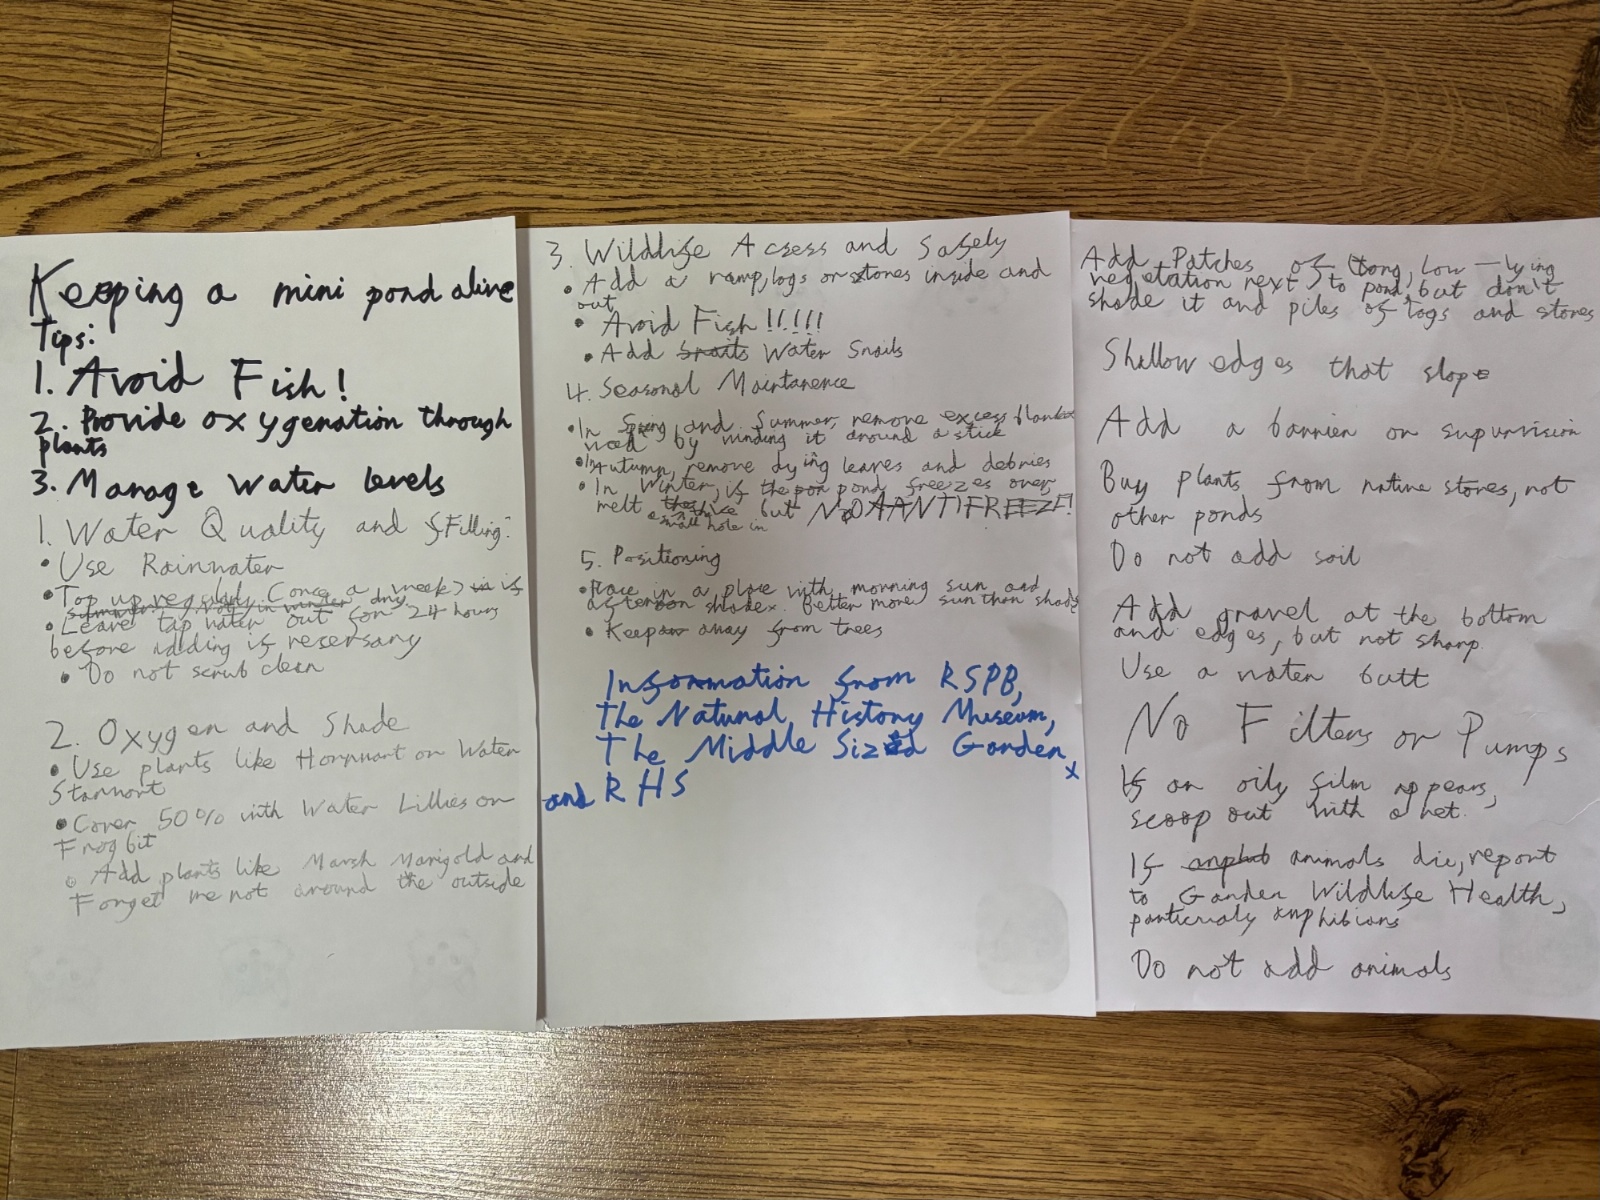 Keeping a mini pond alive
Tips:
1. Avoid Fish!
2. Provide oxygenation through
plants
3. Manage Water levels
1. Water Quality and Filling:
• Use Rainwater
• Top up regularly (once a week) in if
summer, not in winter dry
• Leave tap water out for 24 hours
before adding if necersary
• Do not scrub clean
2. Oxygen and Shade
• Use plants like Hornwort or Water
Starwort
• Cover 50% with Water Lillies or
Frogbit
• Add plants like Marsh Marigold and
Forget me not around the outside
3. Wildlife Acsess and Safely
• Add a ramp, logs or stones inside and
out
• Avoid Fish!!!!!
• Add Snails Water Snails
4. Seasonal Maintanence
• In Spring and Summer, remove excess blanket
weed by winding it around a stick
• In Autumn, remove dying leaves and debries
• In Winter, if the pon pond freezes over,
melt the ice but NO ANTIFREEZE!
a small hole in
5. Positioning
• Place in a place with morning sun and
afternoon shade. Better more sun than shade
• Keep away from trees
Information from RSPB,
The Natural History Museum,
The Middle Sized Garden,
and RHS
Add Patches of long, low-lying
vegetation next to pond, but don't
shade it and piles of logs and stones
Shallow edges that slope
Add a barrier or supurvision
Buy plants from native stores, not
other ponds
Do not add soil
Add gravel at the bottom
and edges, but not sharp
Use a water butt
No Filters or Pumps
If an oily film appears,
scoop out with a net.
If amphib animals die, report
to Garden Wildlife Health,
particularly amphibians
Do not add animals